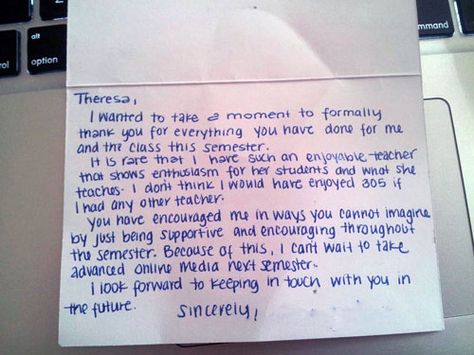 trol
alt
option
command
Theresa,
I wanted to take a moment to formally
thank you for everything you have done for me
and the class this semester.
It is rare that I have such an enjoyable teacher
that shows enthusiasm for her students and what she
teaches. I don't think I would have enjoyed 305 if
I had any other teacher.
You have encouraged me in ways you cannot imagine
by just being supportive and encouraging throughout
the semester. Because of this, I can't wait to take
advanced online media next semester.
I look forward to keeping in touch with you in
the future.
Sincerely,